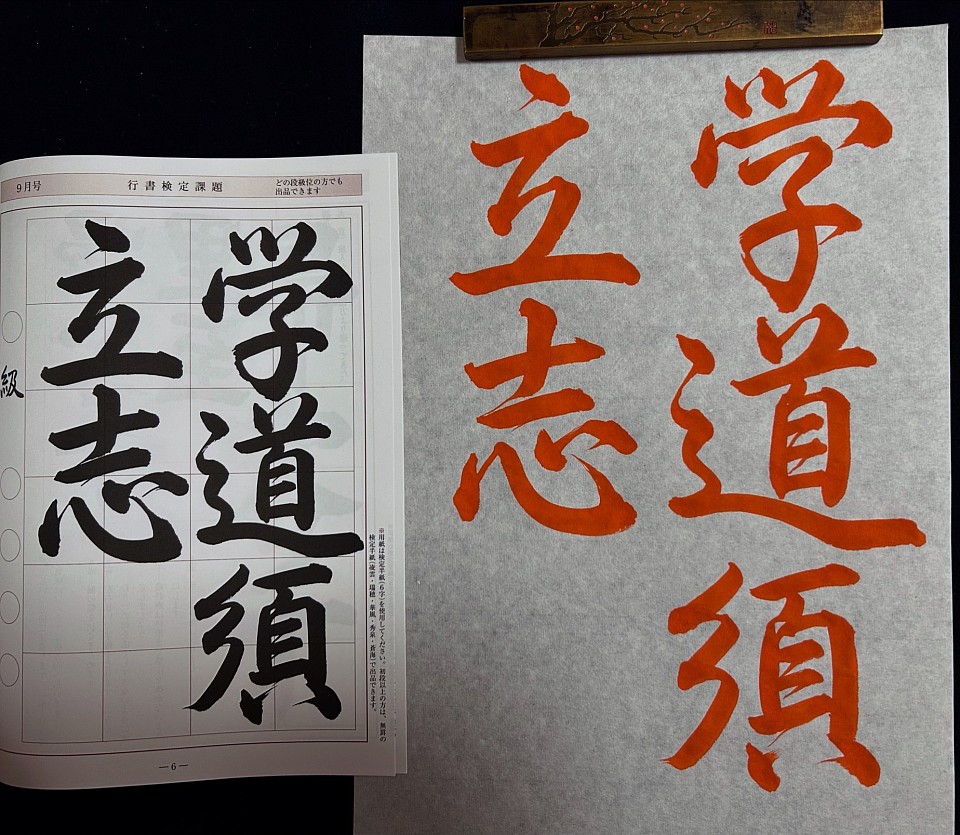 9月号
行書検定課題
どの段級位の方でも
出品できます
学道須
立志
級
※用紙は検定半紙(6字)を使用してください。初段以上の方は、無罫の
検定半紙(凌雲・瑞穂・華風・秀泉・蒼海)で出品できます。
―6―
学道須
立志